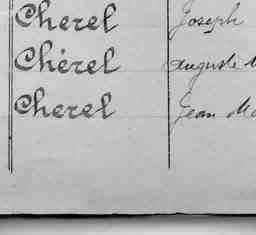 Cherel Joseph
Chérel Auguste
Cherel Jean